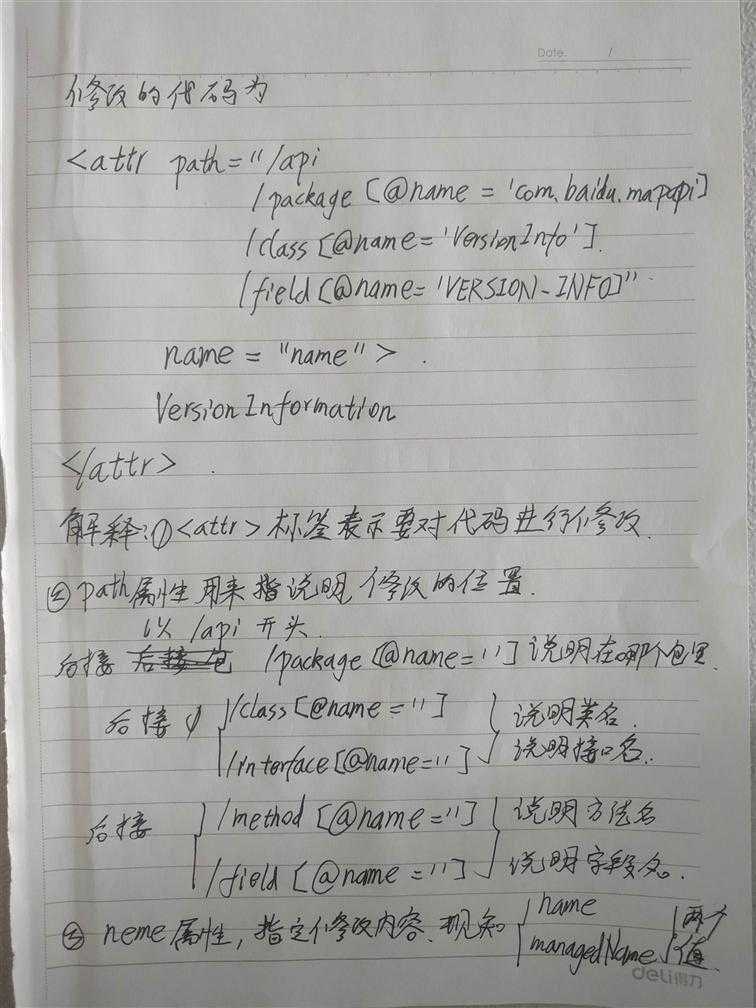 Date. /
修改的代码为
<attr path="/api
/package [@name = 'com.baidu.mapapi]
/class[@name='VersionInfo'].
/field[@name='VERSION-INFO]"
name = "name">.
VersionInformation
</attr>.
解释:①<attr>标签表示要对代码进行修改.
② path属性用来指说明修改的位置.
以 /api 开头.
后接 /package [@name='']说明在哪个包里.
后接 /class[@name=''] 说明类名.
/interface[@name=''] 说明接口名.
后接 /method [@name=''] 说明方法名
/field [@name=''] 说明字段名.
③ neme属性,指定修改内容.现知 name 两个
managedName 值.
deli得力